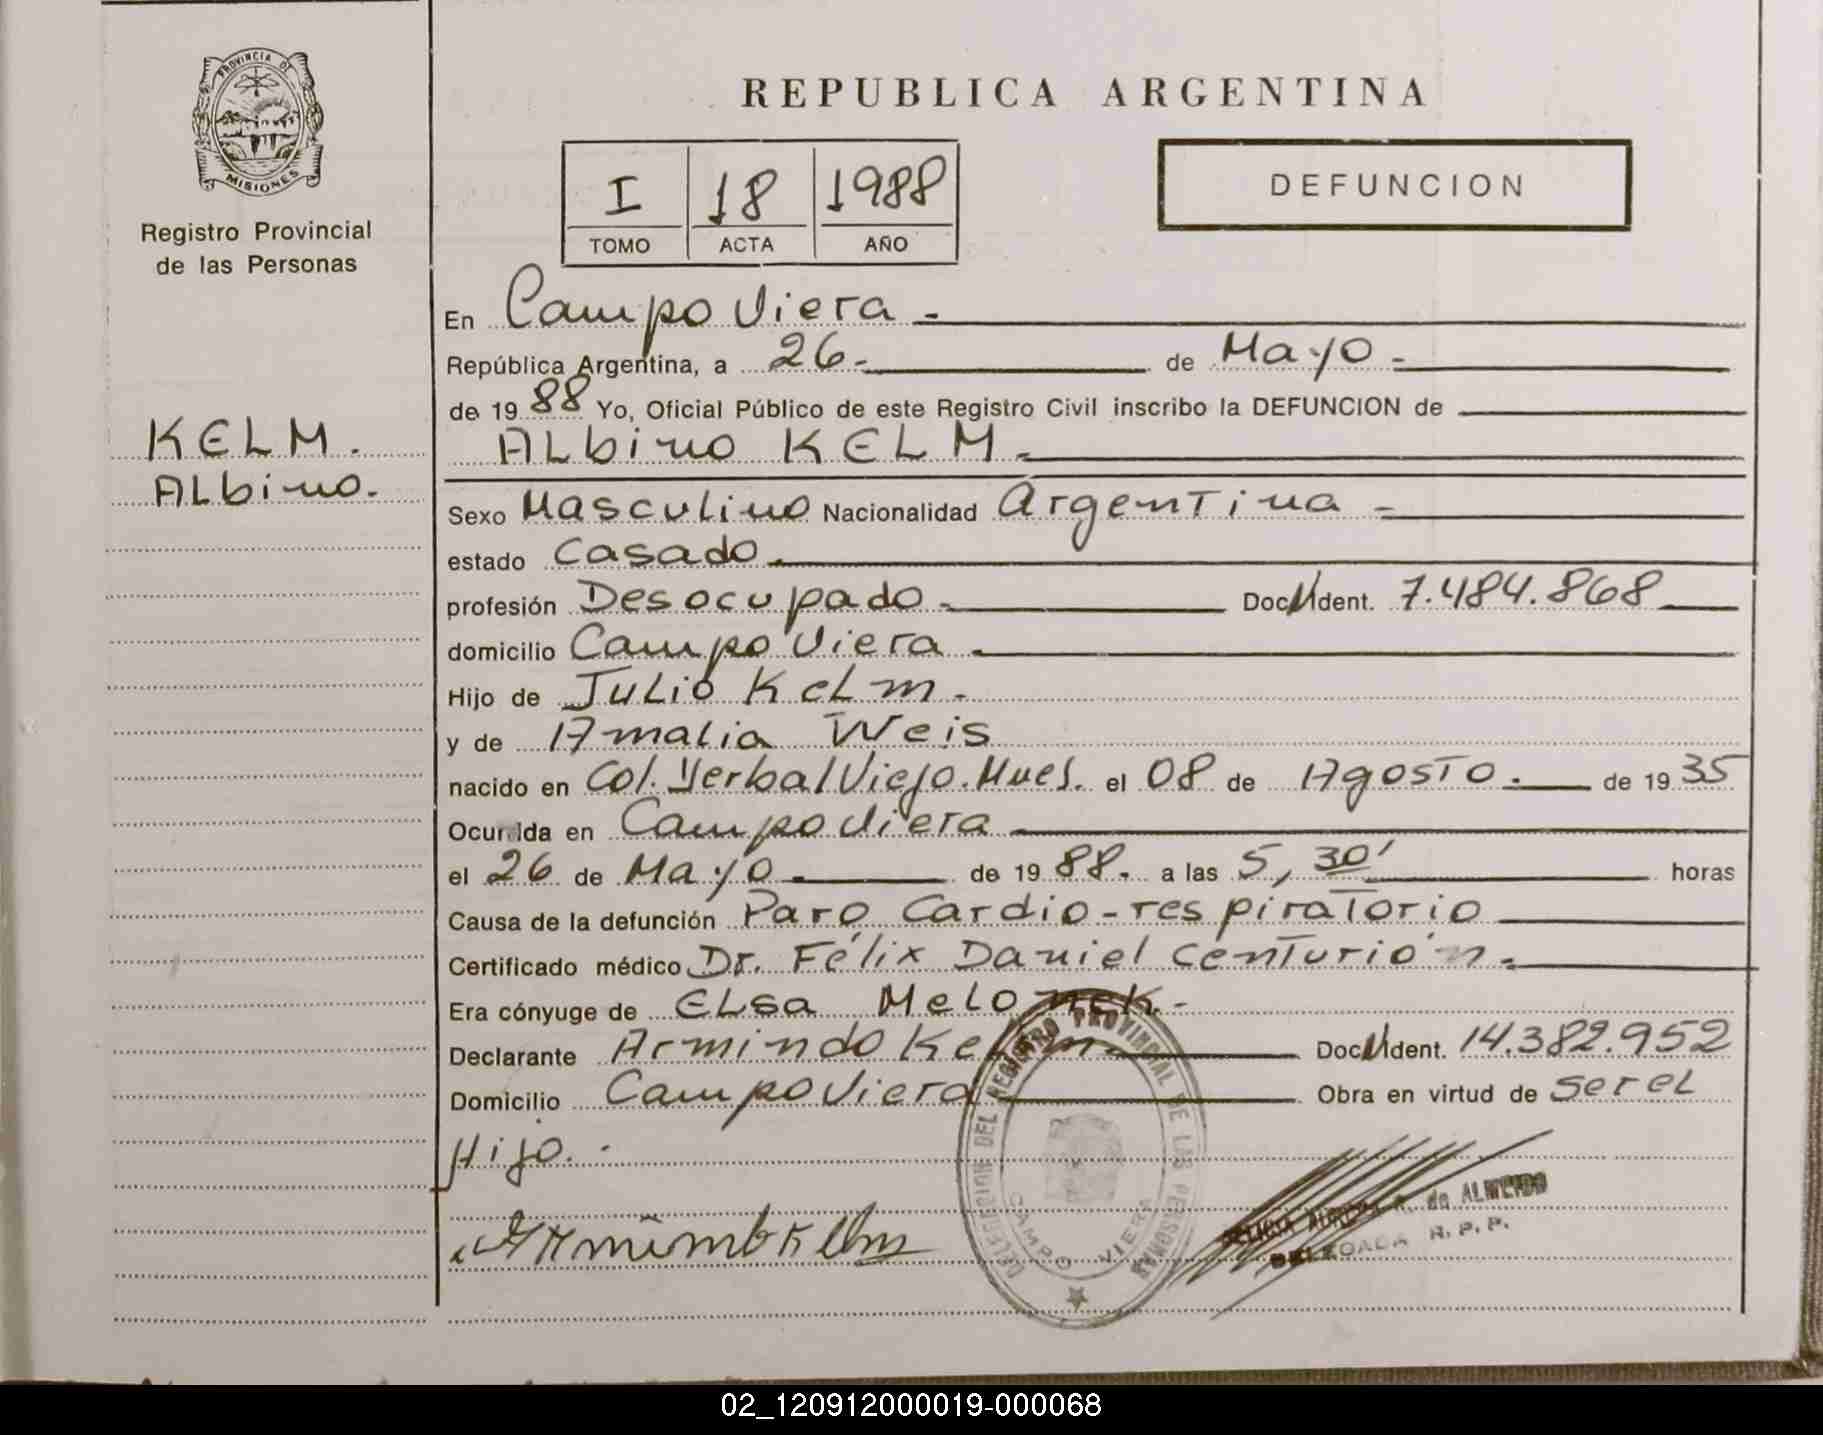 PROVINCIA DE
MISIONES
Registro Provincial
de las Personas
KELM.
ALbino.
REPUBLICA ARGENTINA
I 18 1988
TOMO ACTA AÑO
DEFUNCION
En Campo Viera -
República Argentina, a 26 - de Mayo -
de 19 88 Yo, Oficial Público de este Registro Civil inscribo la DEFUNCION de
ALbino KELM -
Sexo Masculino Nacionalidad Argentina -
estado Casado -
profesión Desocupado - Doc. Ident. 7.484.868
domicilio Campo Viera -
Hijo de Julio Kelm -
y de Amalia Weis
nacido en Col. Yerbal Viejo. Mnes. el 08 de Agosto . de 19 35
Ocurrida en Campo Viera
el 26 de Mayo - de 19 88. a las 5,30' horas
Causa de la defunción Paro Cardio-respiratorio
Certificado médico Dr. Félix Daniel Centurión -
Era cónyuge de ELsa Melonek -
Declarante Armindo Kelm Doc. Ident. 14.382.952
Domicilio Campo Viera Obra en virtud de Ser el
Hijo. -
DELEGACION DEL REGISTRO PROVINCIAL DE LAS PERSONAS
CAMPO VIERA
de ALMEIDO
DELEGADA R.P.P.
02_120912000019-000068